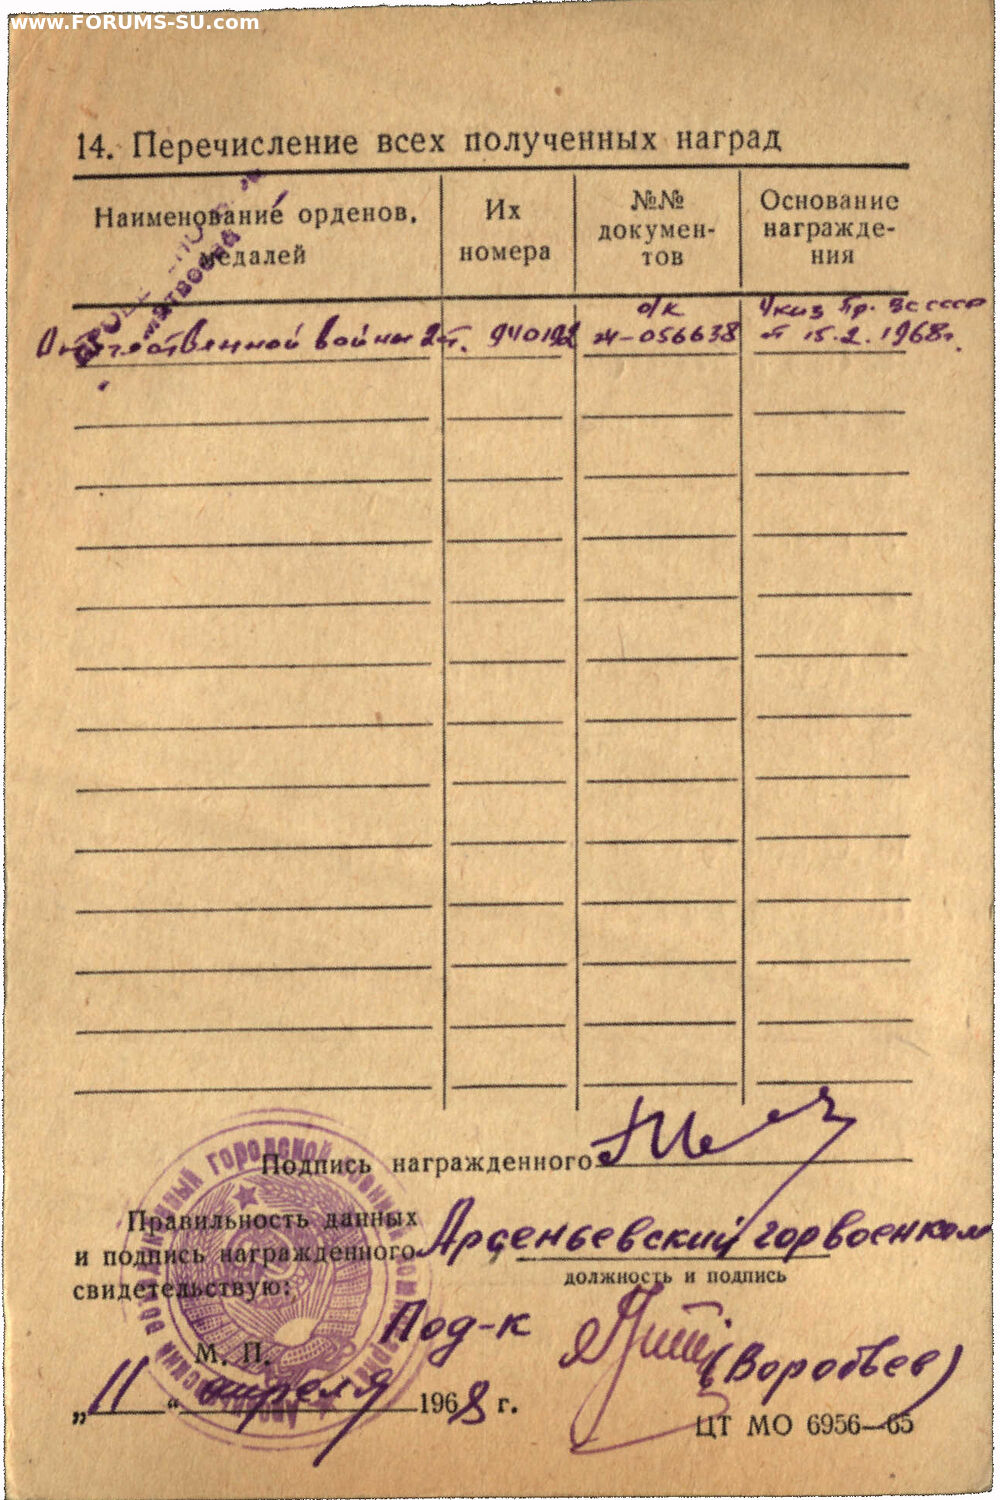 www.FORUMS-SU.com
14. Перечисление всех полученных наград
Наименование орденов, медалей
Их номера
№№ докумен-
тов
Основание
награжде-
ния
Отечественной войны 2 ст.
940192
о/к
Ж-056638
Указ Пр. ВС СССР
от 15.2.1968г.
Подпись награжденного
Правильность данных
и подпись награжденного
свидетельствую:
Арсеньевский горвоенком
должность и подпись
Под-к
(Воробьев)
М. П.
„11“ апреля 1968 г.
ЦТ МО 6956—65